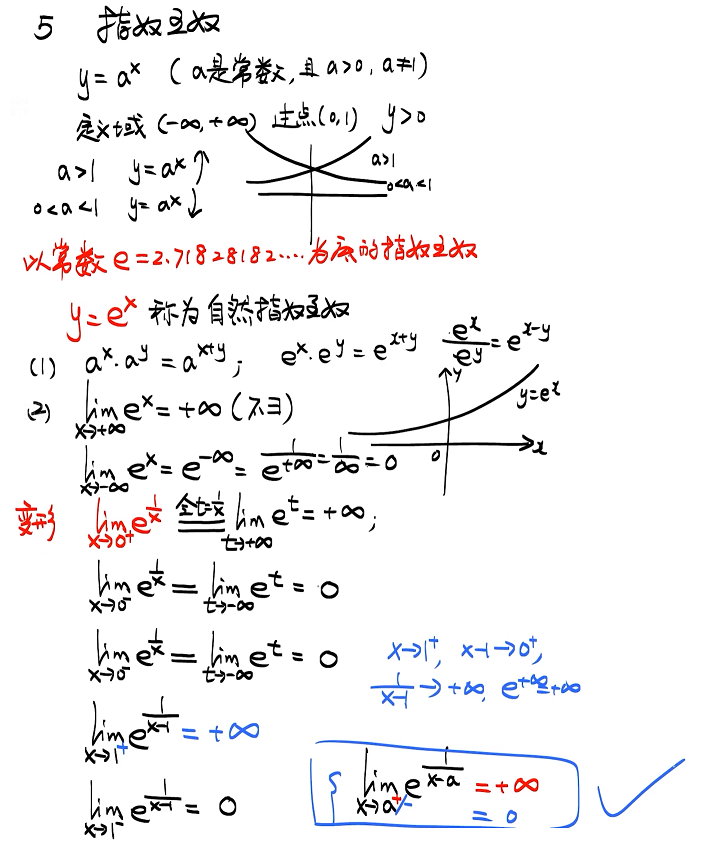 5 指数函数
y = aˣ (a是常数,且 a>0, a≠1)
定义域 (-∞, +∞) 过点(0,1) y>0
a>1 y=aˣ ↑
a>1
0<a<1 y=aˣ ↓
0<a<1
以常数 e=2.71828182....为底的指数函数
y=eˣ 称为自然指数函数
(1) aˣ·aʸ = aˣ⁺ʸ; eˣ·eʸ = eˣ⁺ʸ eˣ/eʸ = eˣ⁻ʸ
(2) lim x→+∞ eˣ = +∞ (不∃)
y
y=eˣ
0
x
lim x→-∞ eˣ = e^(-∞) = 1/e^(+∞) = 1/∞ = 0
变形 lim x→0⁺ e^(1/x) 令t=1/x lim t→+∞ eᵗ = +∞;
lim x→0⁻ e^(1/x) = lim t→-∞ eᵗ = 0
lim x→0⁻ e^(1/x) = lim t→-∞ eᵗ = 0
x→1⁺, x-1→0⁺,
1/(x-1) → +∞, e^(+∞)=+∞
lim x→1⁺ e^(1/(x-1)) = +∞
lim x→a⁺ e^(1/(x-a)) = +∞
⁻ = 0
lim x→1⁻ e^(1/(x-1)) = 0